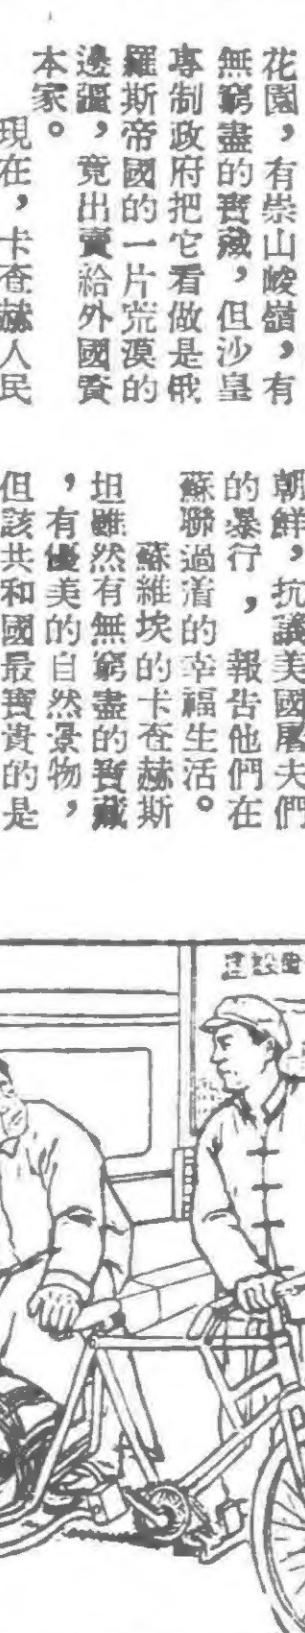 花園，有崇山峻嶺，有
無窮盡的寶藏，但沙皇
專制政府把它看做是俄
羅斯帝國的一片荒漠的
邊疆，竟出賣給外國資
本家。
現在，卡查赫人民
朝鮮，抗議美國屠夫們
的暴行，報告他們在
蘇聯過着的幸福生活。
蘇維埃的卡查赫斯
坦雖然有無窮盡的寶藏
，有優美的自然景物，
但該共和國最寶貴的是